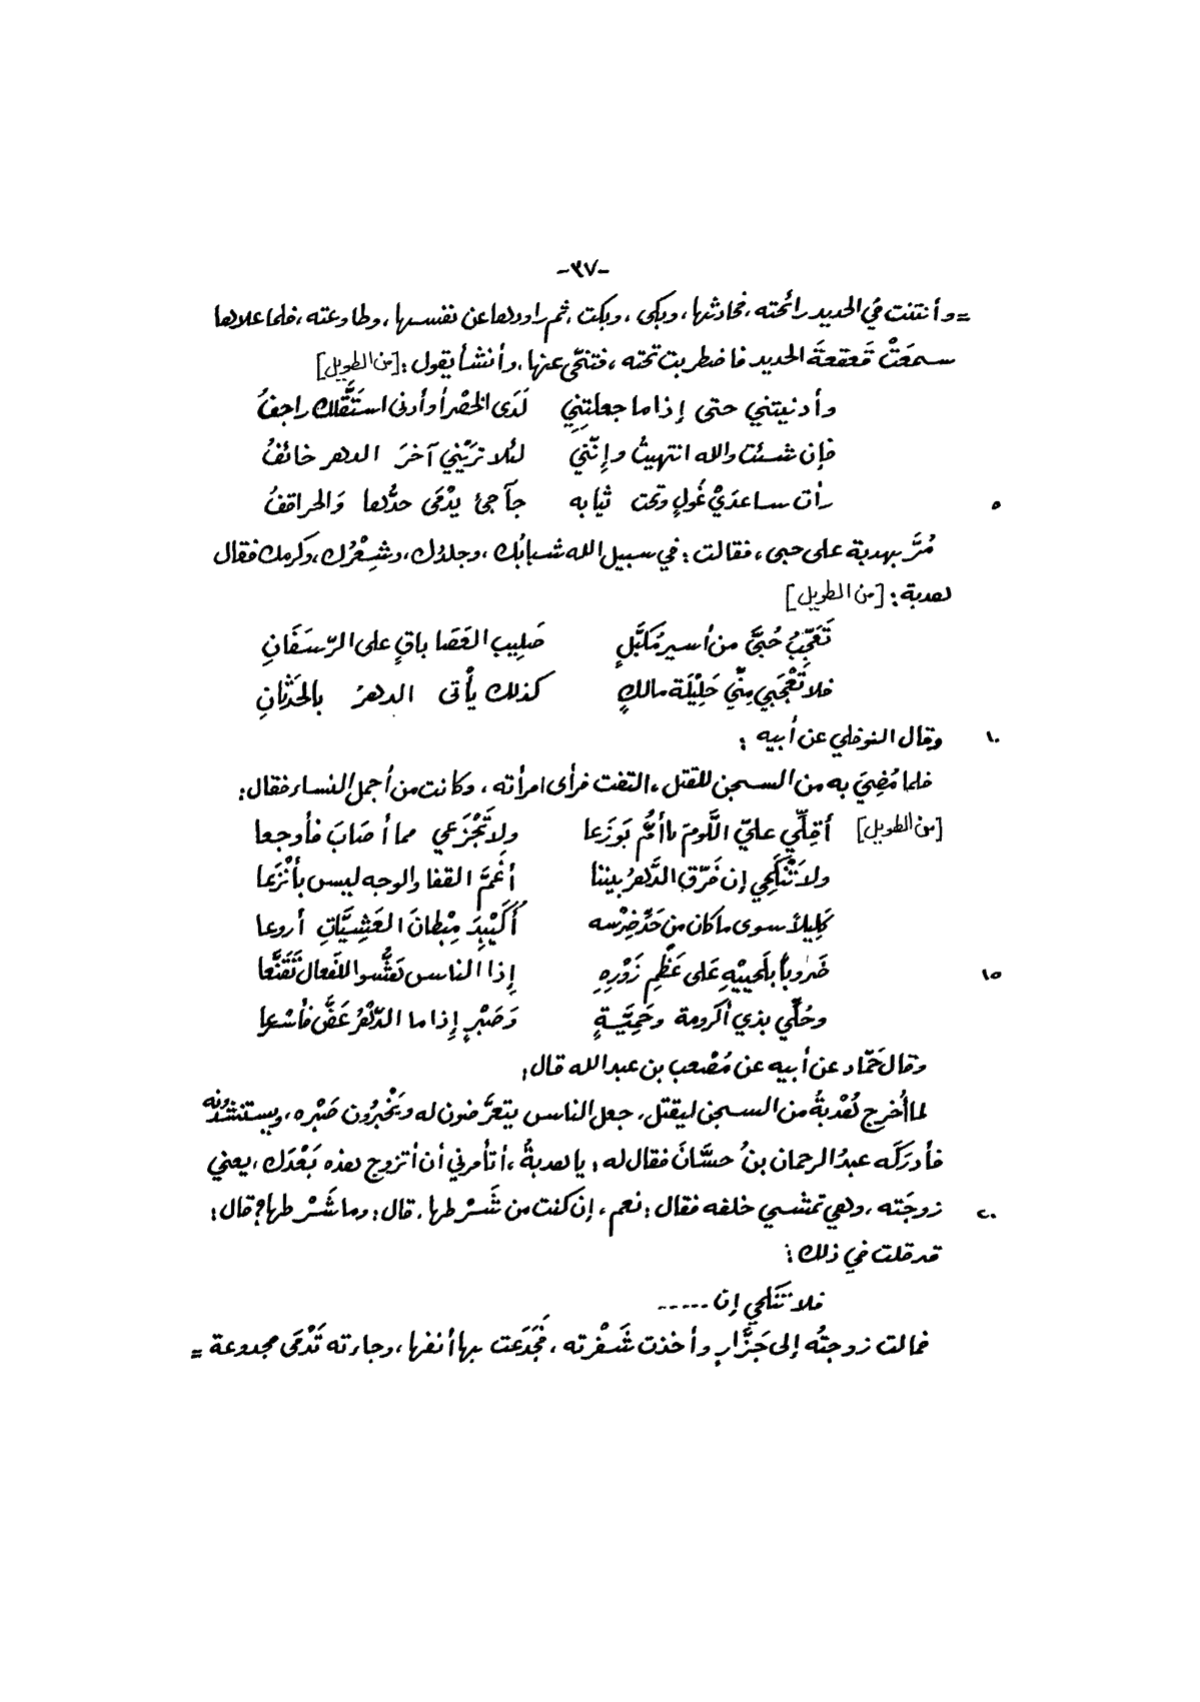 -٣٧-
= وأنتنت في الحديد رائحته، فحادثها، وبكى، وبكت، ثم راودها عن نفسها، وطاوعته، فلما علاها
سمعَتْ قَعقعةَ الحديد فاضطربت تحته، فتنحّى عنها، وأنشأ يقول: [من الطويل]
وأدنيتني حتى إذا ما جعلتِنِي لَدَى الخصْرِ أو أدنى استَقَّلك راجفُ
فإن شئتِ والله انتهيتُ وإنّني لئلا تَرَيْنِي آخرَ الدهر خائفُ
رأت ساعدَيْ غُولٍ وتحت ثيابه جآجئ يدْمَى حدُّها وَالحراقفُ ٥
مُرَّ بهدبة على حبى، فقالت: في سبيل الله شبابُك، وجلدُك، وشِعْرُك، وكرمك فقال
هدبة: [من الطويل]
تَعَجَّبُ حُبَّى من أسيرٍ مُكَبَّلٍ صَلِيبِ العَصَا باقٍ على الرّسَفَانِ
فلا تَعْجَبِي مِنِّي حَلِيْلَة مالكٍ كذلك يأْتى الدهرُ بالحَدَثانِ
وقال النوفلي عن أبيه: ١٠
فلما مُضِيَ به من السجن للقتل، التفت فرأى امرأته، وكانت من أجمل النساء فقال:
[من الطويل] أقِلِّي عليّ اللَّومَ يا أُمَّ بَوزَعا ولا تَجْزَعي مما أصَابَ فأوجعا
ولا تَنْكَحِي إن فَرّقَ الدَّهرُ بيننا أغَمَّ القفا والوجه ليس بأَنْزَعا
كَلِيلاً سوى ما كان من حَدِّ ضِرْسه أُكَيْبِدَ مِبْطانَ العَشِيَّاتِ أروعا
ضَرُوباً بلَحييْهِ عَلى عَظْمِ زَوْرِهِ إذا الناس هَشُّوا للفعال تَقَنَّعا ١٥
وحُلِّي بذي أكرومة وحَمِيَّةٍ وَصَبْرٍ إذا ما الدّهْرُ عَضَّ فأسْرعا
وقال حَمّاد عن أبيه عن مُصْعب بن عبد الله قال:
لما أُخرِج هُدْبةُ من السجن ليقتل، جعل الناس يتعرَّضون له ويَخْبُرُون صَبْره، ويستنشدونه
فأدرَكَه عبدُ الرحمان بنُ حسَّانَ فقال له: يا هدبةُ، أتأمرني أن أتزوج هذه بَعْدَك، يعني
زوجَته، وهي تمشي خلفه فقال: نعم، إن كنت من شَرْطها. قال: وما شَرْطها؟ قال: ٢٠
قد قلت في ذلك:
فلا تَنكَحي إن -----
فمالت زوجتُه إلى جَزَّارٍ وأخذت شَفْرته، فجَدَعت بها أنفها، وجاءته تَدْمَى مجدوعة =